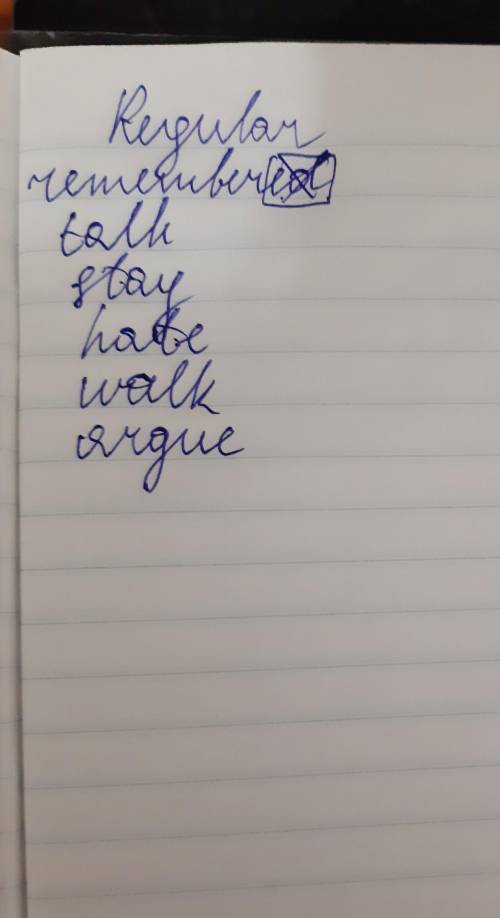 Regular
remember
talk
stay
hate
walk
argue